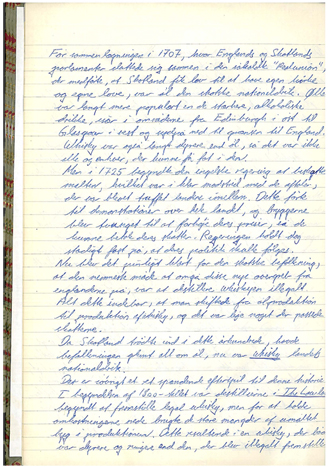 Før sammenlægningen i 1707, hvor Englands og Skotlands
parlamenter sluttede sig sammen i den såkaldte "Realunion",
der medførte, at Skotland fik lov til at have egen kirke
og egne love, var øl den skotske nationaldrik. Øllet
var langt mere populært end de stærkere, alkoholiske
drikke, især i områderne fra Edinburgh i øst til
Glasgow i vest og sydpå ned til grænsen til England.
Whisky var også langt dyrere end øl, så det var ikke
alle og enhver, der kunne få fat i den.
Men i 1725 begyndte den engelske regering at beskatte
malten, hvilket var i klar modstrid med de aftaler,
der var blevet truffet landene imellem. Dette førte
til demonstrationer over hele landet, og bryggerne
blev tvunget til at forhøje deres priser, så de
kunne betale deres skatter. Regeringen holdt dog
stadigt fast på, at deres politik skulle følges.
Nu blev det simpelthen klart for den skotske befolkning,
at den nemmeste måde at omgå disse nye overgreb fra
englænderne på, var at destillere whiskyen illegalt.
Alt dette indebar, at man skiftede fra ølproduktion
til produktion af whisky, og det var lige noget for
skotterne.
Da Skotland trådte ind i dette århundrede, havde
befolkningen glemt alt om øl, nu var whisky landets
nationaldrik.
Der er iøvrigt et ret spændende efterspil til denne historie.
I begyndelsen af 1800-tallet var destillerierne i The Lowlands
begyndt at fremstille legal whisky, men for at holde
omkostningerne nede brugte de store mængder af umaltet
byg i produktionen. Dette resulterede i en whisky, der
var dyrere og ringere end den, der blev illegalt fremstillet